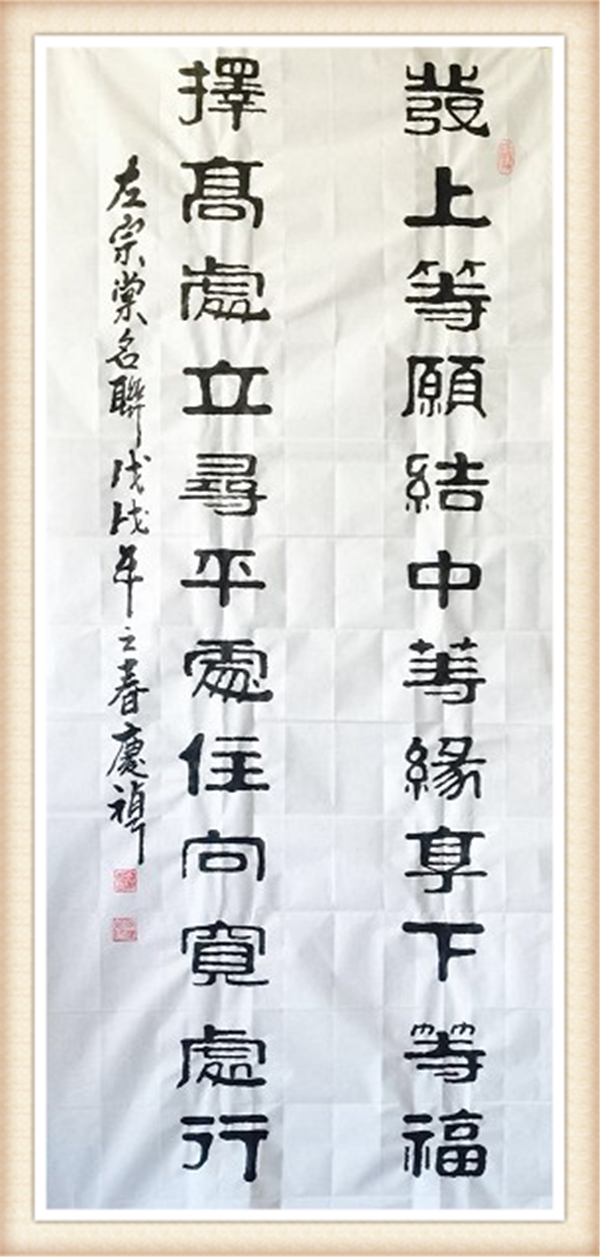 發上等願結中等緣享下等福
擇高處立尋平處住向寬處行
左宗棠名聯戊戌年之春慶禕